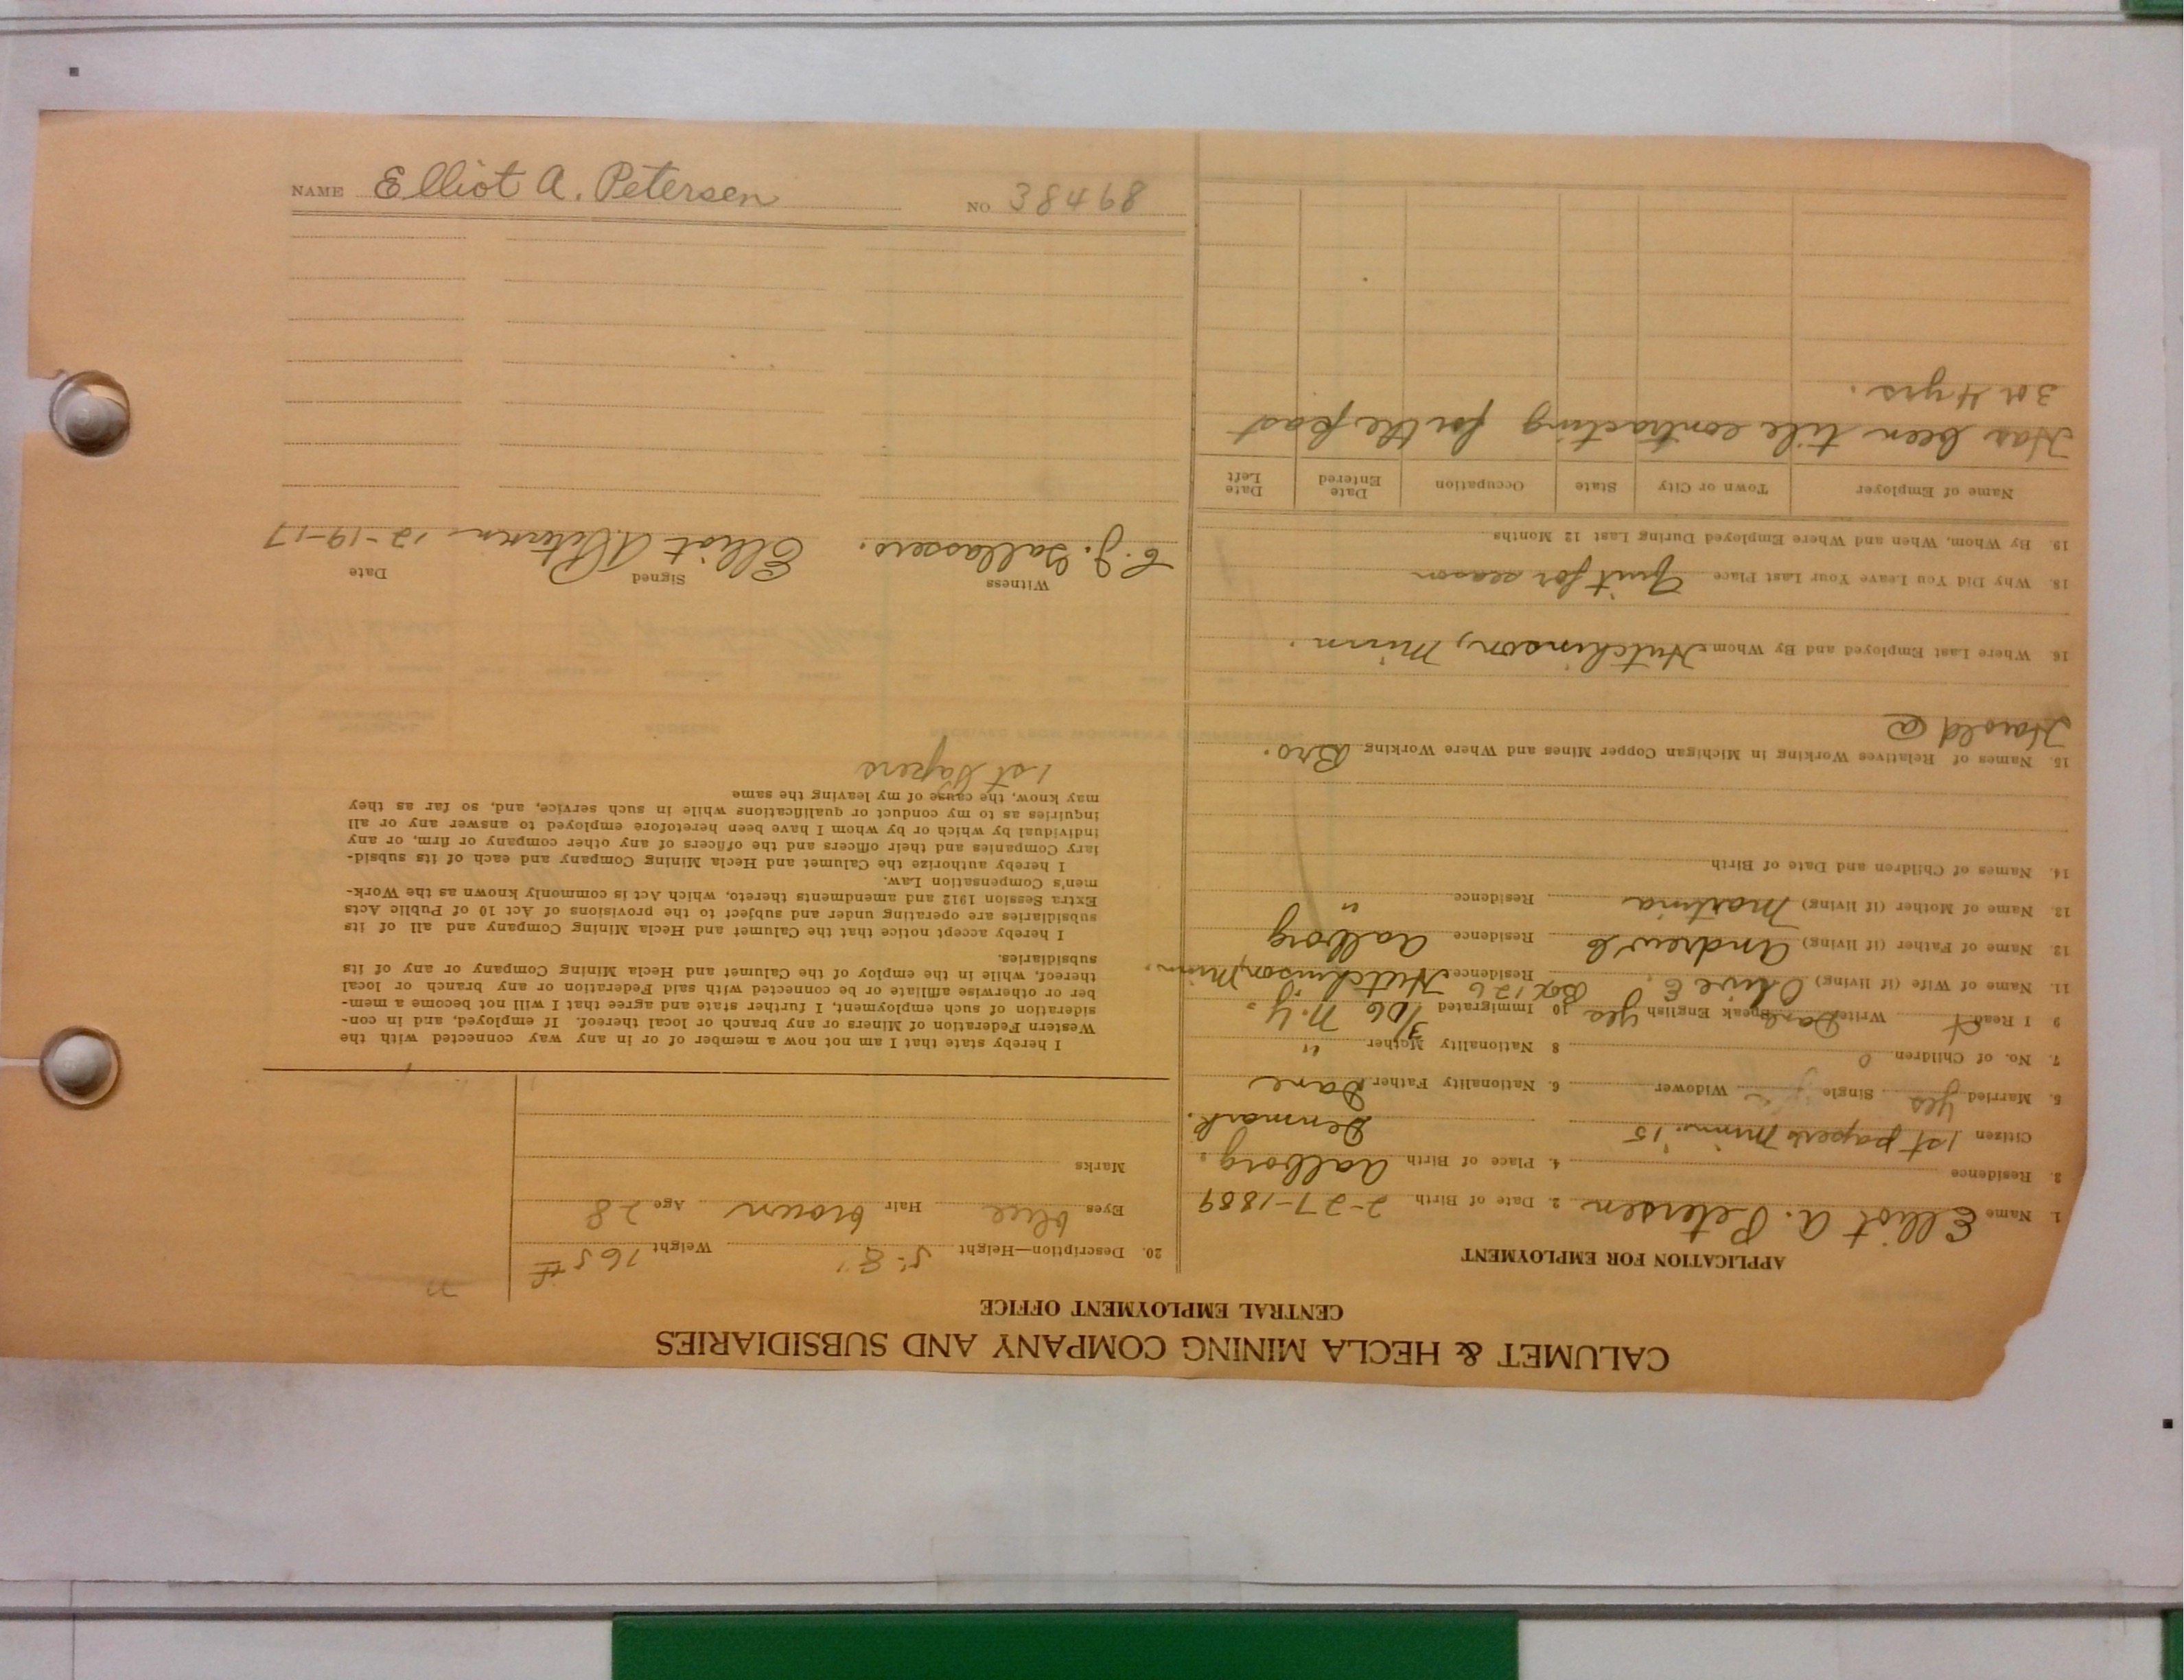 NAME Elliot A. Petersen NO 38468
CALUMET & HECLA MINING COMPANY AND SUBSIDIARIES
CENTRAL EMPLOYMENT OFFICE
APPLICATION FOR EMPLOYMENT
1. Name Elliot A. Petersen 2. Date of Birth 2-27-1889
3. Residence 4. Place of Birth Aalborg,
Citizen 1st papers Minn. '15 Denmark.
5. Married yes Single Widower 6. Nationality Father Dane
7. No. of Children 0 8 Nationality Mother "
9 I Read Write Speak English yes 10 Immigrated 3/06 N.Y.
11. Name of Wife (if living) Olive E. Residence Box 126 Hutchinson, Minn.
12. Name of Father (if living) Andrew Residence Aalborg
13. Name of Mother (if living) Martina Residence "
14. Names of Children and Date of Birth
15. Names of Relatives Working in Michigan Copper Mines and Where Working Bro.
Harold @
16. Where Last Employed and By Whom Hutchinson, Minn.
18. Why Did You Leave Your Last Place Quit for season
19. By Whom, When and Where Employed During Last 12 Months
Name of Employer Town or City State Occupation Date Entered Date Left
Has been tile contracting for the past
3 or 4 yrs.
20. Description—Height 5'-8" Weight 165 #
Eyes blue Hair brown Age 28
Marks
I hereby state that I am not now a member of or in any way connected with the
Western Federation of Miners or any branch or local thereof. If employed, and in con-
sideration of such employment, I further state and agree that I will not become a mem-
ber or otherwise affiliate or be connected with said Federation or any branch or local
thereof, while in the employ of the Calumet and Hecla Mining Company or any of its
subsidiaries.
I hereby accept notice that the Calumet and Hecla Mining Company and all of its
subsidiaries are operating under and subject to the provisions of Act 10 of Public Acts
Extra Session 1912 and amendments thereto, which Act is commonly known as the Work-
men's Compensation Law.
I hereby authorize the Calumet and Hecla Mining Company and each of its subsid-
iary Companies and their officers and the officers of any other company or firm, or any
individual by which or by whom I have been heretofore employed to answer any or all
inquiries as to my conduct or qualifications while in such service, and, so far as they
may know, the cause of my leaving the same
1st Papers
Witness Signed Date
Elliot A. Petersen 12-19-17